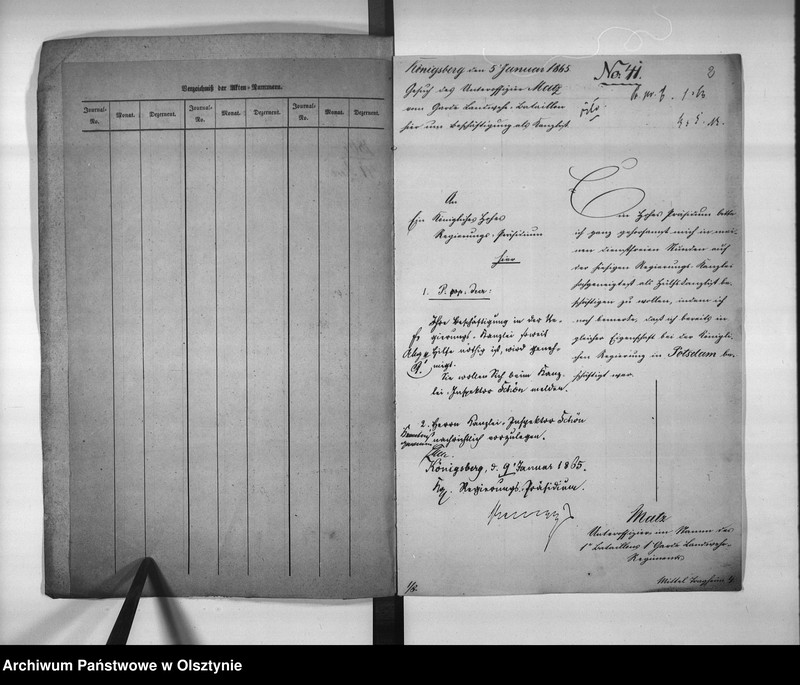 Verzeichniß der Akten-Nummern.
Journal-No. Monat. Dezernent. Journal-No. Monat. Dezernent. Journal-No. Monat. Dezernent.
Königsberg den 5 Januar 1865
No. 41.
2
Gesuch des Unteroffizier Metz
vom Garde Landwehr-Bataillon
hier um Beschäftigung als Kanzlist
An
Ein Königliches Hohes
Regierungs-Präsidium
hier
Ein Hohes Präsidium bitte
ich ganz gehorsamst mich in mei-
nen dienstfreien Stunden auf
der hiesigen Regierungs-Kanzlei
hochgeneigtest als Hülfskanzlist be-
schäftigen zu wollen, indem ich
noch bemerke, daß ich bereits in
gleicher Eigenschaft bei der Königli-
chen Regierung in Potsdam be-
schäftigt war.
Metz
Unteroffizier im Stamm des
1n Bataillons 1n Garde Landwehr-
Regiments
Mittel
1.
Ihre Beschäftigung in der Re-
gierungs-Kanzlei soweit
Hilfe nöthig ist, wird geneh-
migt.
Sie wollen Sich beim Kanz-
lei-Inspektor Schön melden.
2. Herrn Kanzlei-Inspektor Schön
nachrichtlich vorzulegen.
Königsberg, d. 9 Januar 1865.
Kgl. Regierungs-Präsidium.
Archiwum Państwowe w Olsztynie